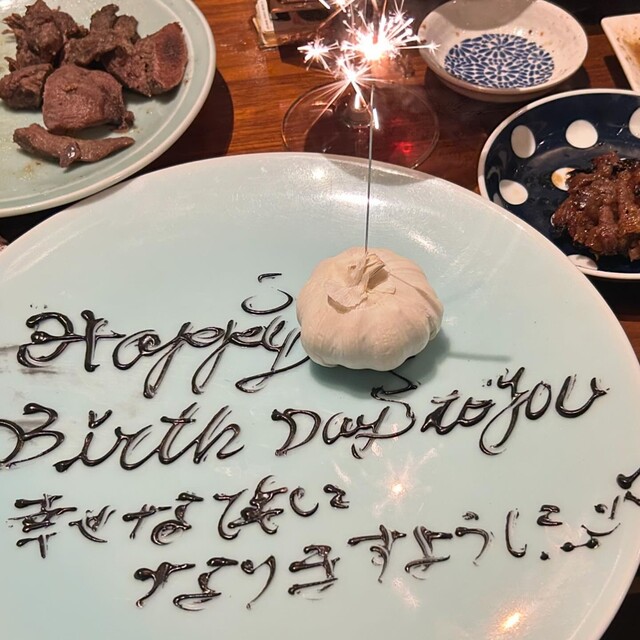 Happy
Birth Day to you
幸せな歳に
なりますように…